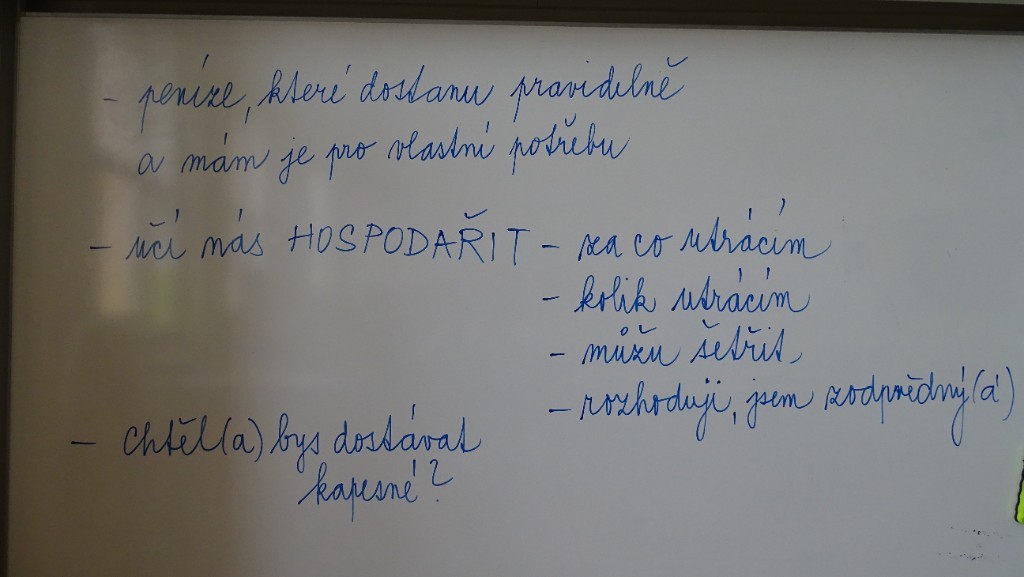 - peníze, které dostanu pravidelně
a mám je pro vlastní potřebu
- učí nás HOSPODAŘIT - za co utrácím
- kolik utrácím
- můžu šetřit
- rozhoduji, jsem zodpovědný(á)
- chtěl(a) bys dostávat
kapesné?